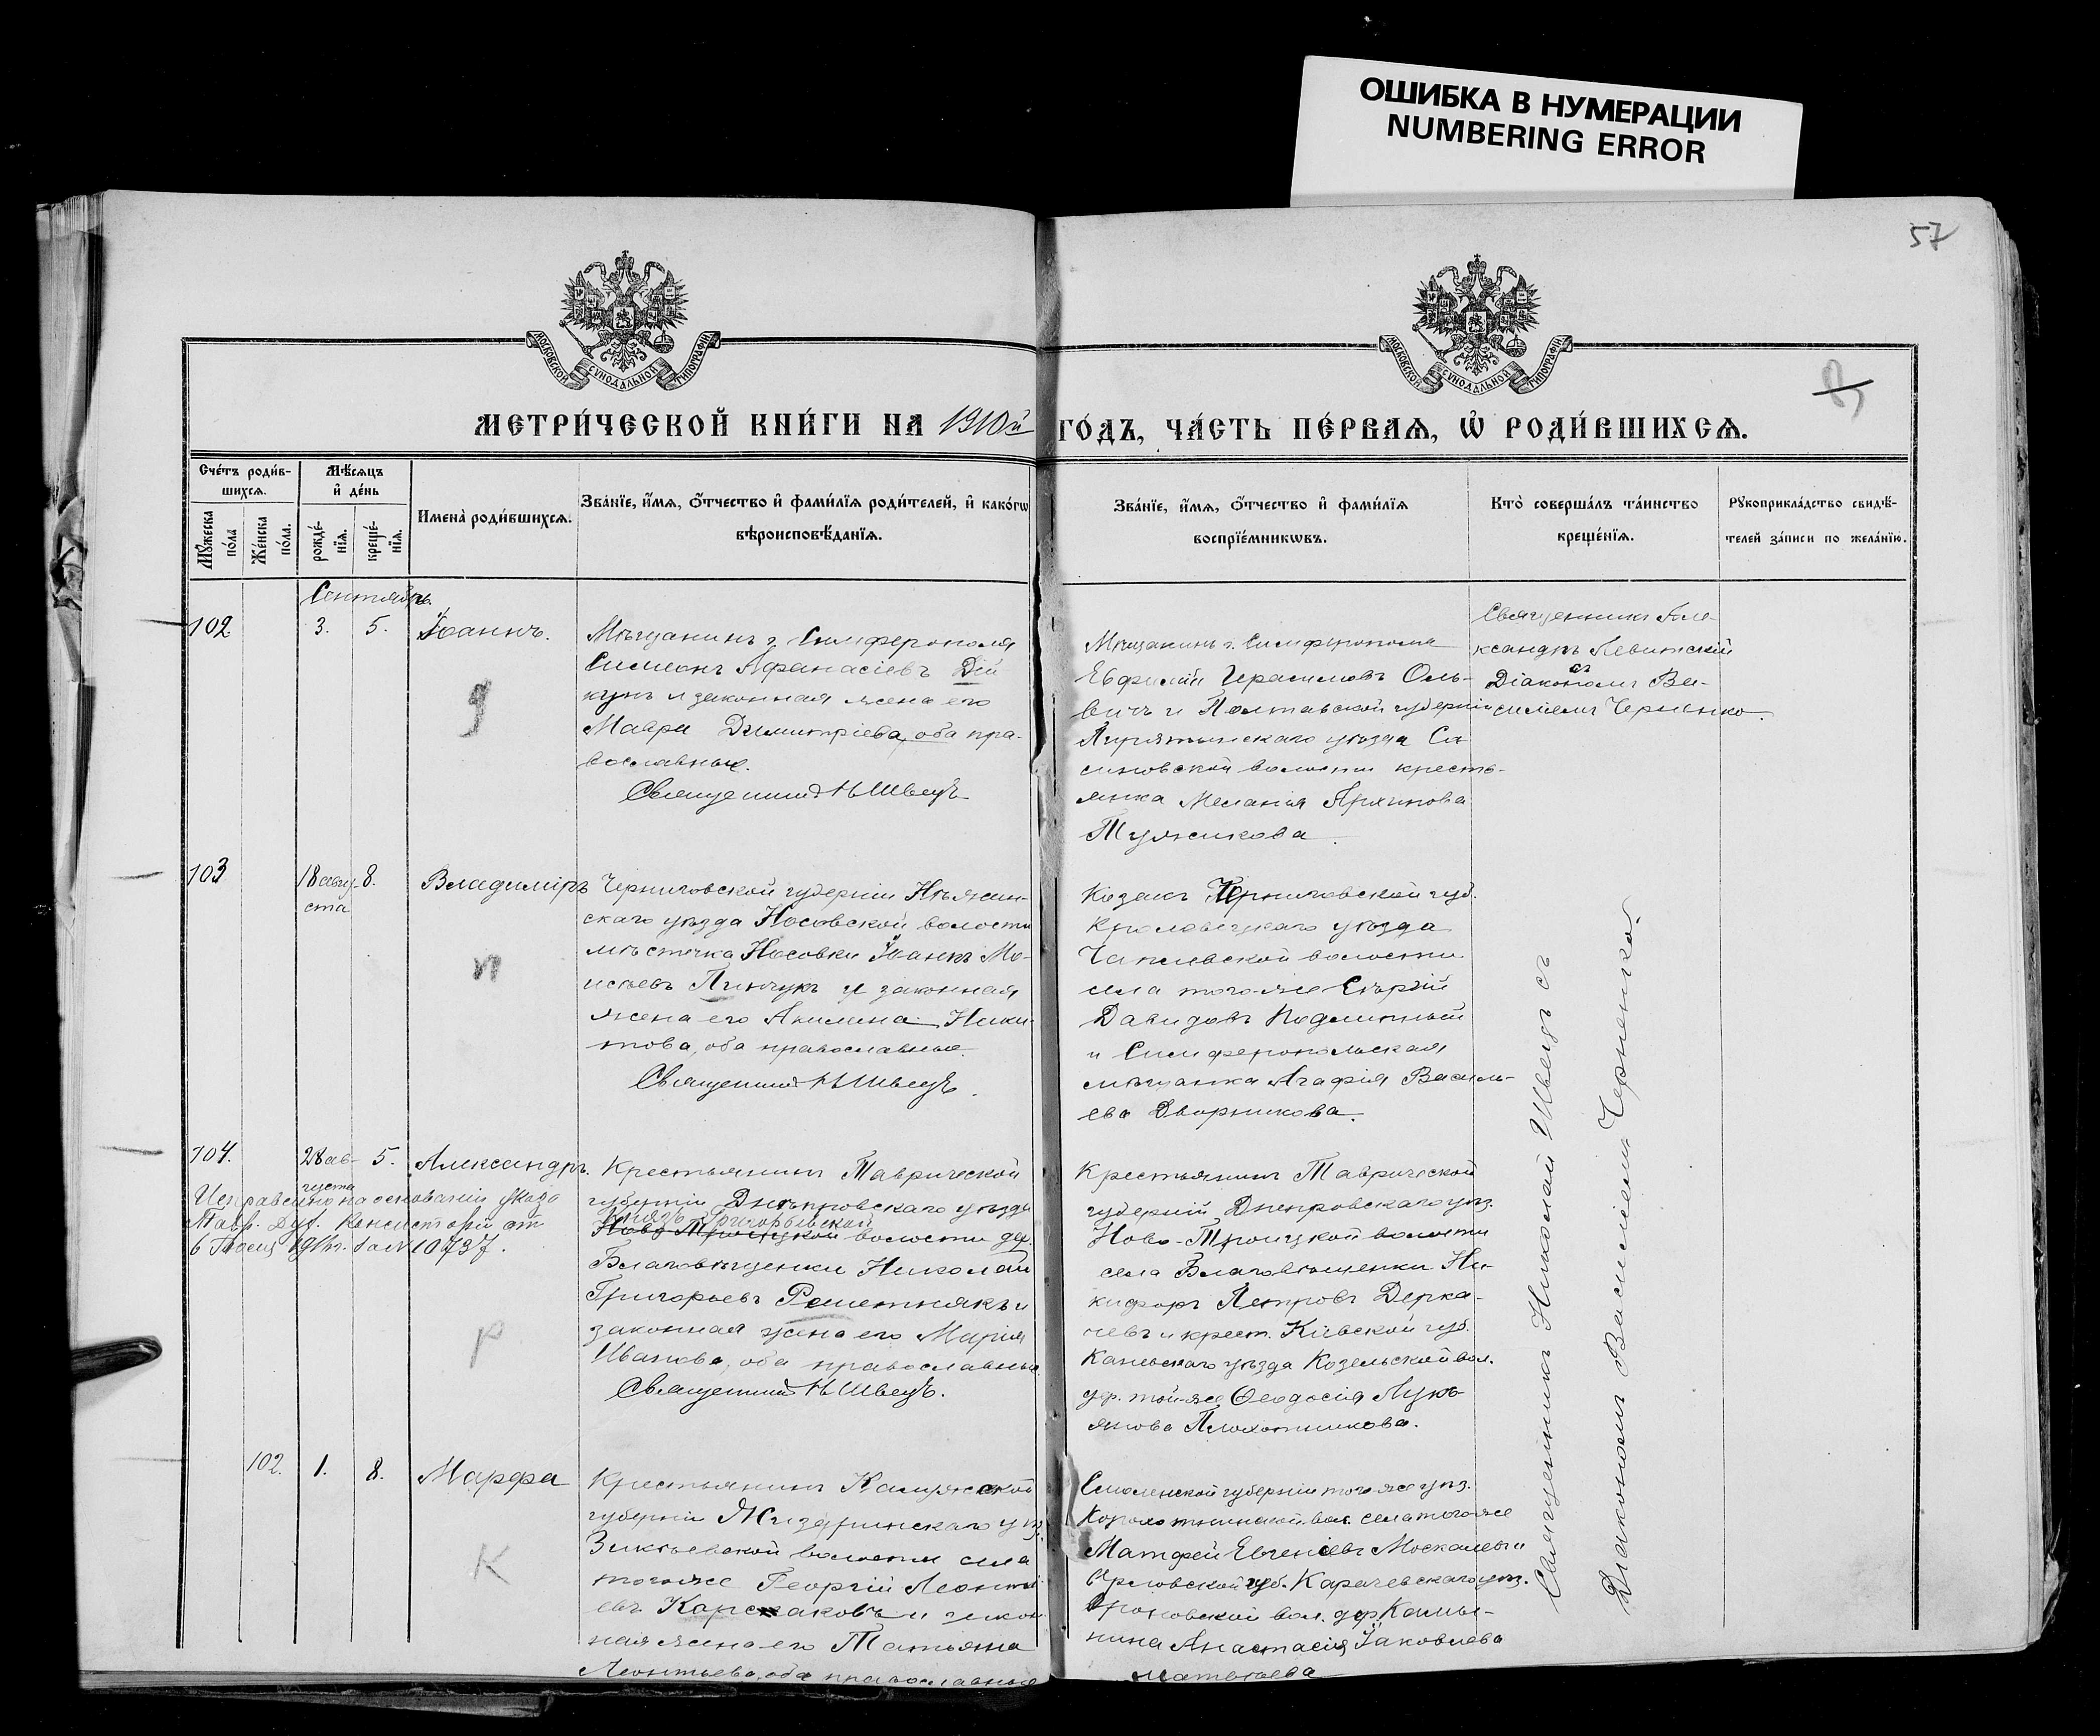 ОШИБКА В НУМЕРАЦИИ
NUMBERING ERROR
57
МОСКОВСКОЙ СѴНОДАЛЬНОЙ ТИПОГРАФІИ
МОСКОВСКОЙ СѴНОДАЛЬНОЙ ТИПОГРАФІИ
МЕТРИ́ЧЕСКОЙ КНИ́ГИ НА 1910й ГО́ДЪ, ЧА́СТЬ ПЕ́РВАѦ, Ѡ҆ РОДИ́ВШИХСѦ.
Сче́тъ роди́в-
шихсѧ.
Мѣ́сѧцъ
и҆ де́нь
Мꙋ́жеска по́ла
Же́нска по́ла.
рожде́-
нїѧ.
креще́-
нїѧ.
Имена̀ роди́вшихсѧ.
Зва́нїе, и҆́мѧ, ѻ҆́тчество и҆ фами́лїѧ роди́телей, и҆ како́гѡ
вѣроисповѣ́данїѧ.
Зва́нїе, и҆́мѧ, ѻ҆́тчество и҆ фами́лїѧ
воспрїе́мникѡвъ.
Кто̀ соверша́лъ та́инство
креще́нїѧ.
Рꙋкоприкла́дство свидѣ́-
телей за́писи по жела́нїю.
Сентябрь.
102
3.
5.
Іоаннъ.
Мѣщанинъ г. Симферополя
Симеонъ Афанасіевъ Дій
кунъ и законная жена его
Мавра Димитріева, оба пра-
вославные.
Священникъ Н Швецъ
Мѣщанинъ г. Симферополя
Евфимій Герасимовъ Оль-
вичъ и Полтавской губерніи
Пирятинскаго уѣзда Са
синовской волости кресть-
янка Меланія Архипова
Тужикова.
Священникъ Але-
ксандръ Левитскій
съ
Діакономъ Ва-
силіемъ Черненко.
д
103
18 авгу-
ста
8.
Владиміръ
Черниговской губерніи Нѣжин-
скаго уѣзда Носовской волости
мѣстечка Носовки Іоаннъ Мо-
исеевъ Пинчукъ и законная
жена его Акилина Ники-
това, оба православные.
Священникъ Н Швецъ.
Козакъ Черниговской губ.
Кролевецкаго уѣзда
Чаплевской волости
села того-же Сергій
Давидовъ Подлипный
и Симферопольская
мѣщанка Агафія Василь-
ева Дворникова.
п
104.
28 ав-
густа
5.
Александръ.
Исправлено на основаніи указа
Тавр. Дух. Консисторіи от
6 1911г. за № 10737.
Крестьянинъ Таврической
губерніи Днѣпровскаго уѣзда
Князь-Григорьевской
Ново-Троицкой волости дер.
Благовѣщенки Николай
Григорьевъ Решетнякъ и
законная жена его Марія
Иванова, оба православные.
Священникъ Н Швецъ.
Крестьянинъ Таврической
губерніи Днепровскаго уѣз.
Ново-Троицкой волости
села Благовѣщенки Ни-
кифоръ Петровъ Дерка-
чевъ и крест. Кіевской губ.
Каневскаго уѣзда Козельской вол.
дер. той-же Ѳеодосія Лукь
янова Плохотникова.
р
102.
1.
8.
Марфа
Крестьянинъ Калужской
губерніи Жиздринскаго уѣз.
Зикѣевской волости села
того-же Георгій Леонті
евъ Корсаковъ и закон
ная жена его Татьяна
Леонтьева, оба православные
Смоленской губерніи того-же уѣз.
вол. села того-же
Матфей Евгеніевъ Москалевъ и
Орловской губ. Карачевскаго уѣз.
вол. дер.
нина Анастасія Іаковлева
Матвѣева
К
Священникъ Николай Швецъ съ
Діакономъ Василіемъ Черненко.